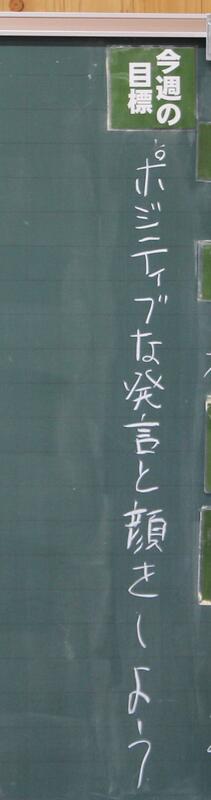 今週の
目標
ポジティブな発言と顔をしよう